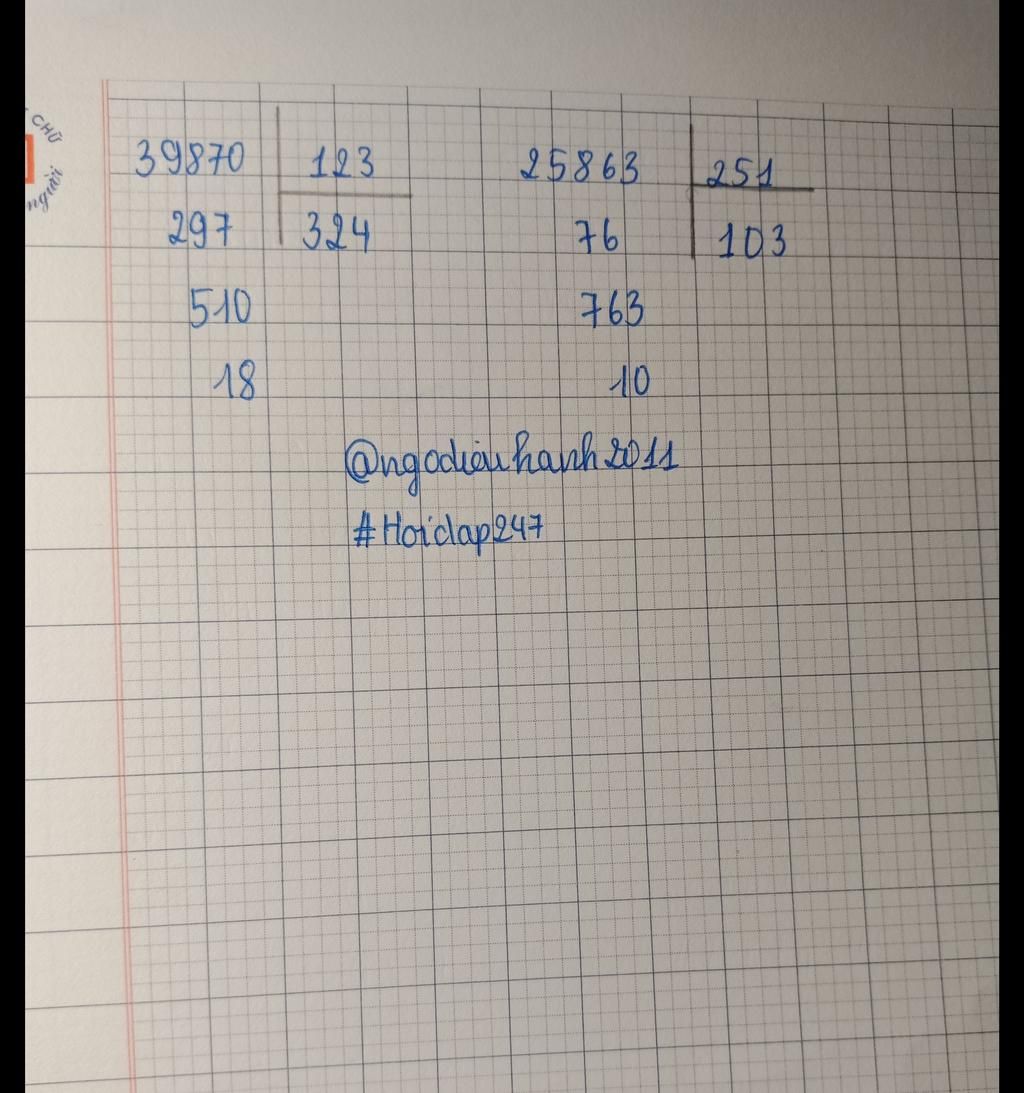 CHỮ
người
39870 123 25863 251
297 324 76 103
510 763
18 10
@ngodieuhanh2011
#Hoidap247